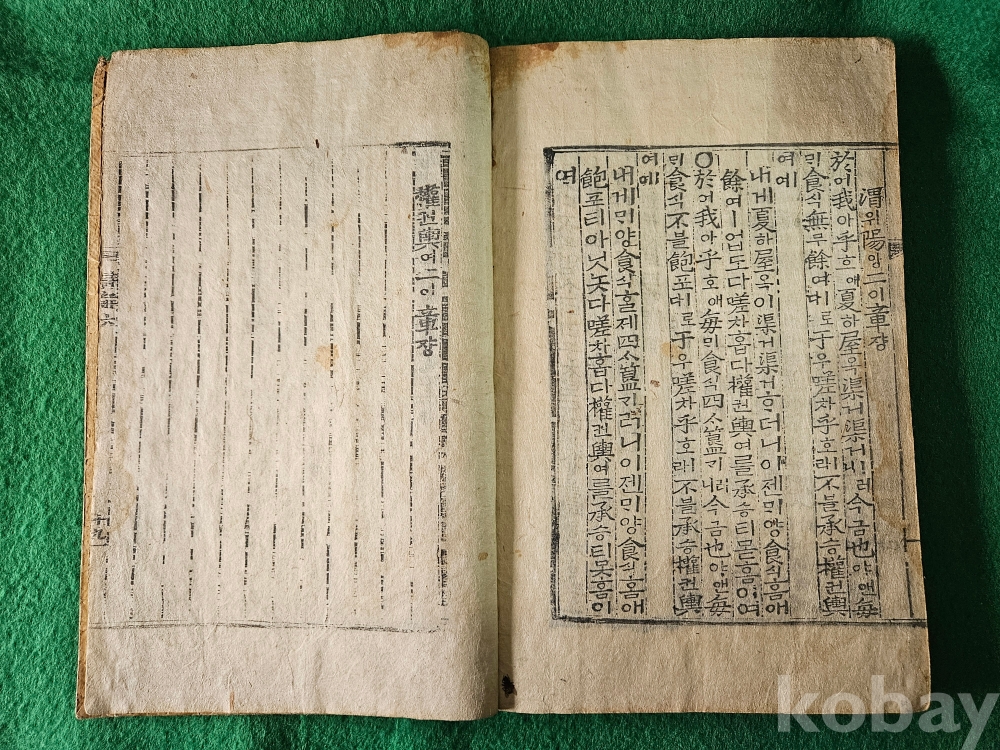 渭위陽양二이章쟝
於어我아乎호애夏하屋옥渠거渠거ㅣ러니今금也야앤每
ᄆᆡ食식無무餘여ㅣ로다于우嗟차乎호ㅣ라不블承승權권輿
여ㅣ여
내게夏하屋옥이渠거渠거ᄒᆞ더니이젠ᄆᆡ양食식홈애
餘여ㅣ업도다嗟차홉다權권輿여를承승티몯홈이여
○於어我아乎호애每ᄆᆡ食식四ᄉᆞ簋기러니今금也야앤每
ᄆᆡ食식不블飽포ㅣ로다于우嗟차乎호ㅣ라不블承승權권輿
여ㅣ여
내게ᄆᆡ양食식홀제四ᄉᆞ簋기러니이젠ᄆᆡ양食식홈애
飽포티아닛놋다嗟차홉다權권輿여를承승티못홈이
여
權권輿여二이章쟝
十九
kobay